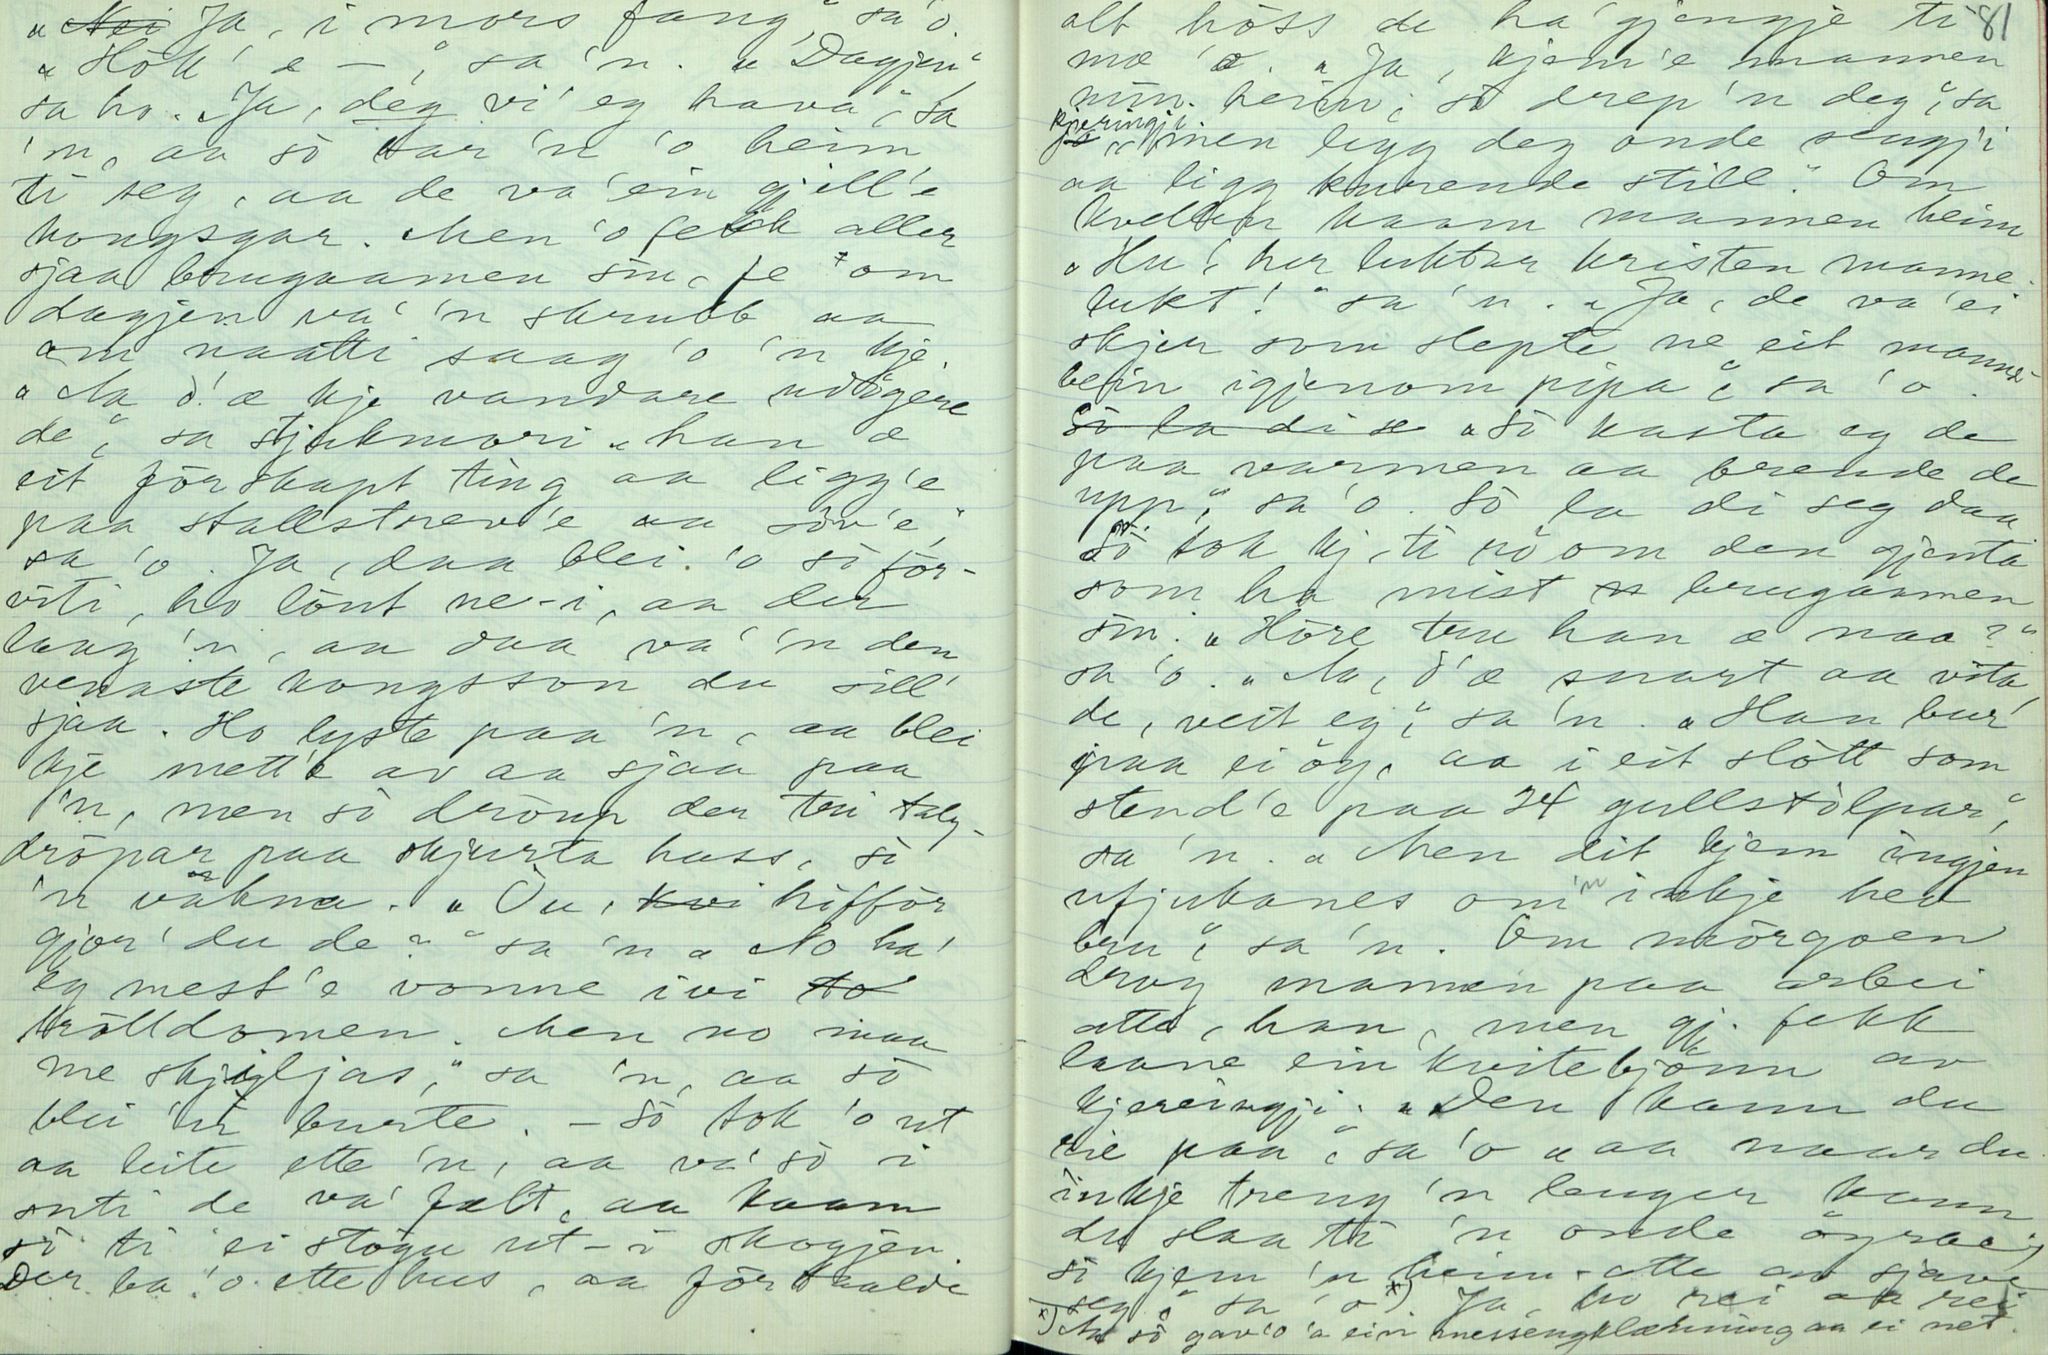 „Nei Ja, i mors fang," sa 'o.
„Hök' e –," sa 'n. „Dagjen"
sa ho. „Ja, deg vi' eg hava," sa
'n, aa sò bar 'n 'o heim
ti seg, aa de va' ein gjill'e
kongsgar. Men 'o fekk aller
sjaa brugaamen sin, fe om
dagjen va' 'n skrubb aa
om naatti saag 'o 'n kje.
„Aa d' æ kje vandare
de," sa stjukmori „han æ
eit förskapt ting aa ligg'e
paa stallstrev'e aa söv'e,"
sa 'o. Ja, daa blei 'o sò för-
viti, ho lönt ne-i, aa der
laag 'n, aa daa va' 'n den
venaste kongsson du vill'
sjaa. Ho lyste paa 'n, aa blei
kje mett'e av aa sjaa paa
'n, men sò dröup der tri talg-
dròpar paa skjurta hass, sò
'n vakna. „Òu, kvi hòfför
gjor' du de?" sa 'n „No ha'
eg mest'e vonne ivi to
tròlldomen. Men no maa
me skjiljas," sa 'n, aa sò
blei 'n burte. – Sò tok 'o ut
aa leite ette 'n, aa va' sò i
onti de va' fælt, aa kaam
sò ti ei stògu ut-i skogjen.
Der ba 'o ette hus, aa förtaalde
81
alt hòss de ha' gjengje ti
mæ 'o. „Ja, kjem'e mannen
min heim, sò drep 'n deg," sa
kjeringji
„men legg deg onde sengji
aa ligg kurende still." Om
kvelden kaam mannen heim
„Hu, her luktar kristen manne-
lukt!" sa 'n. „Ja, de va' ei
skjer som slepte ne eit manne-
bein igjenom pipa," sa 'o.
Sò la di se „Sò kasta eg de
paa varmen aa brende de
upp," sa 'o. Sò la di seg daa
Sò tok kj. ti nò om den gjenta
som ha mist brugaamen
sin: „Hòre tru han æ naa?"
sa 'o. „Aa, d' æ snart aa vita
de, veit eg," sa 'n. „Han bur'
paa ei öy, aa i eit slòtt som
stend'e paa 24 gullstòlpar,"
sa 'n. „Men dit kjem ingjen
ufjukanes om 'n inkje hev
bru," sa 'n. Om mòrgoen
drog mannen paa arbei
atte, han, men gj. fekk
laane ein kvitebjönn av
kjeringji. „Den kann du
rie paa," sa 'o „aa naar du
inkje treng 'n lenger kann
du slaa ti 'n onde öyra,
sò kjem 'n heim-atte av sjave
seg," sa 'o x). Ja, ho rei aa rei
x) Aa sò gav 'o 'a ein messengplærming aa ei net.